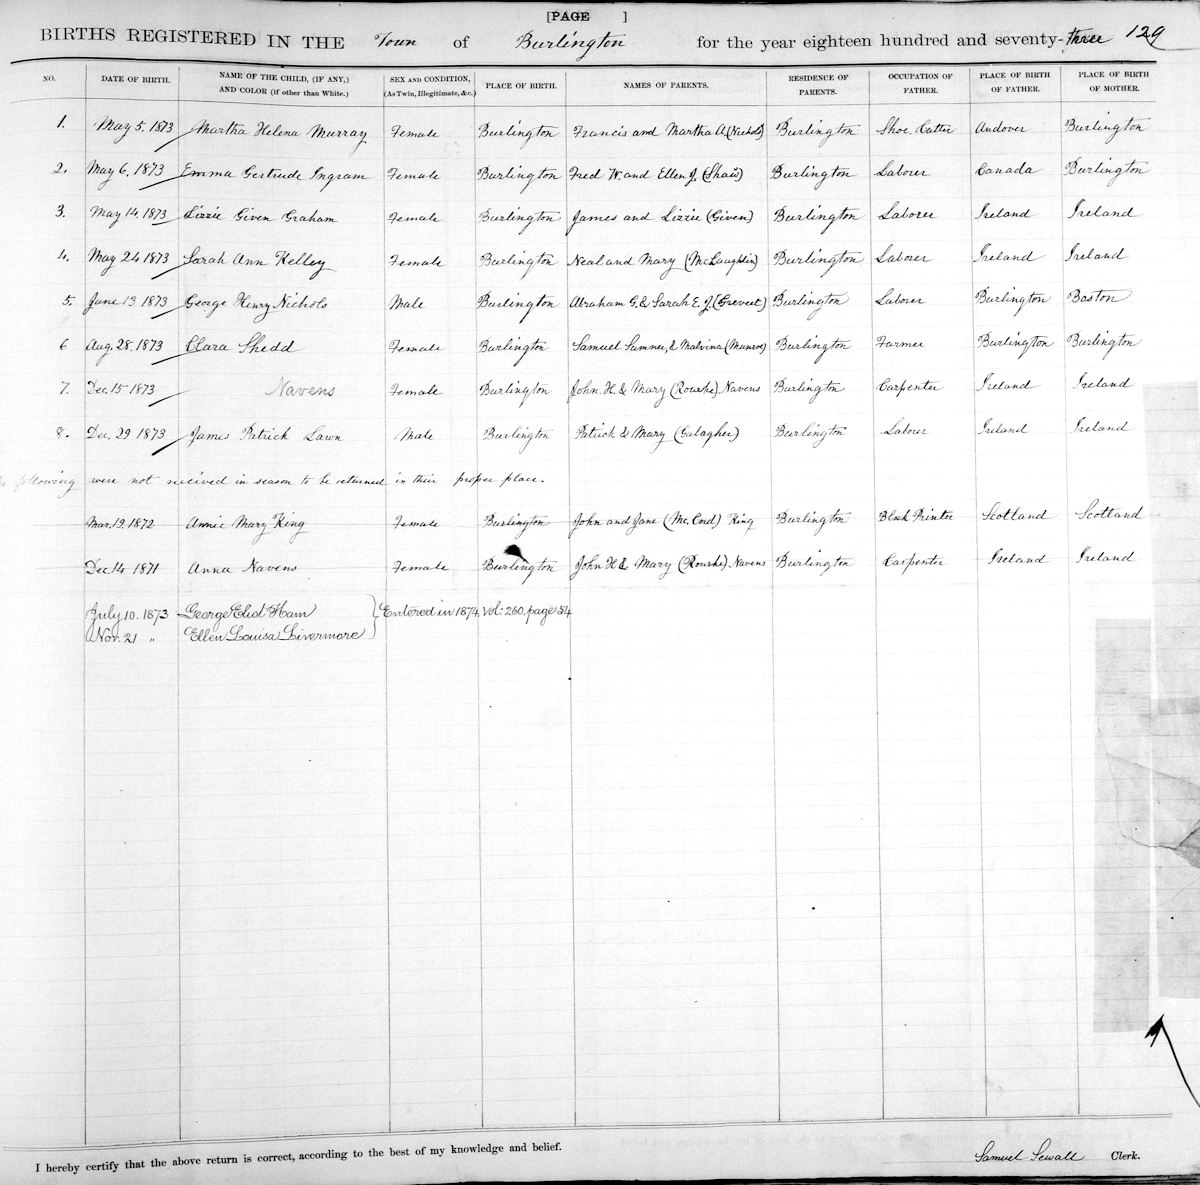 [PAGE ]
BIRTHS REGISTERED IN THE Town of Burlington for the year eighteen hundred and seventy-three 129
NO. DATE OF BIRTH. NAME OF THE CHILD, (IF ANY,) AND COLOR (if other than White.) SEX AND CONDITION, (As Twin, Illegitimate, &c.) PLACE OF BIRTH. NAMES OF PARENTS. RESIDENCE OF PARENTS. OCCUPATION OF FATHER. PLACE OF BIRTH OF FATHER. PLACE OF BIRTH OF MOTHER.
1. May 5. 1873 Martha Helena Murray Female Burlington Francis and Martha A (Nichols) Burlington Shoe Cutter Andover Burlington
2. May 6. 1873 Emma Gertrude Ingram Female Burlington Fred W. and Ellen J. (Shaw) Burlington Laborer Canada Burlington
3. May 14. 1873 Lizzie Given Graham Female Burlington James and Lizzie (Given) Burlington Laborer Ireland Ireland
4. May 24 1873 Sarah Ann Kelley Female Burlington Neal and Mary (McLaughlin) Burlington Laborer Ireland Ireland
5. June 13 1873 George Henry Nichols Male Burlington Abraham G. & Sarah E. J. Burlington Laborer Burlington Boston
6 Aug. 28. 1873 Clara Shedd Female Burlington Samuel Sumner, & Malvina (Munroe) Burlington Farmer Burlington Burlington
7. Dec. 15 1873 Navens Female Burlington John H. & Mary (Rourke) Navens Burlington Carpenter Ireland Ireland
8. Dec. 29 1873 James Patrick Lawn Male Burlington Patrick & Mary (Galagher) Burlington Laborer Ireland Ireland
following were not recieved in season to be returned in their proper place.
Mar. 19. 1872 Annie Mary King Female Burlington John and Jane King Burlington Block Printer Scotland Scotland
Dec. 14 1871 Anna Navens Female Burlington John H & Mary (Rourke) Navens Burlington Carpenter Ireland Ireland
July 10. 1873 George Eliot Ham } Entered in 1874, Vol: 260, page 54
Nov. 21 " Ellen Louisa Livermore
I hereby certify that the above return is correct, according to the best of my knowledge and belief. Samuel Sewall Clerk.